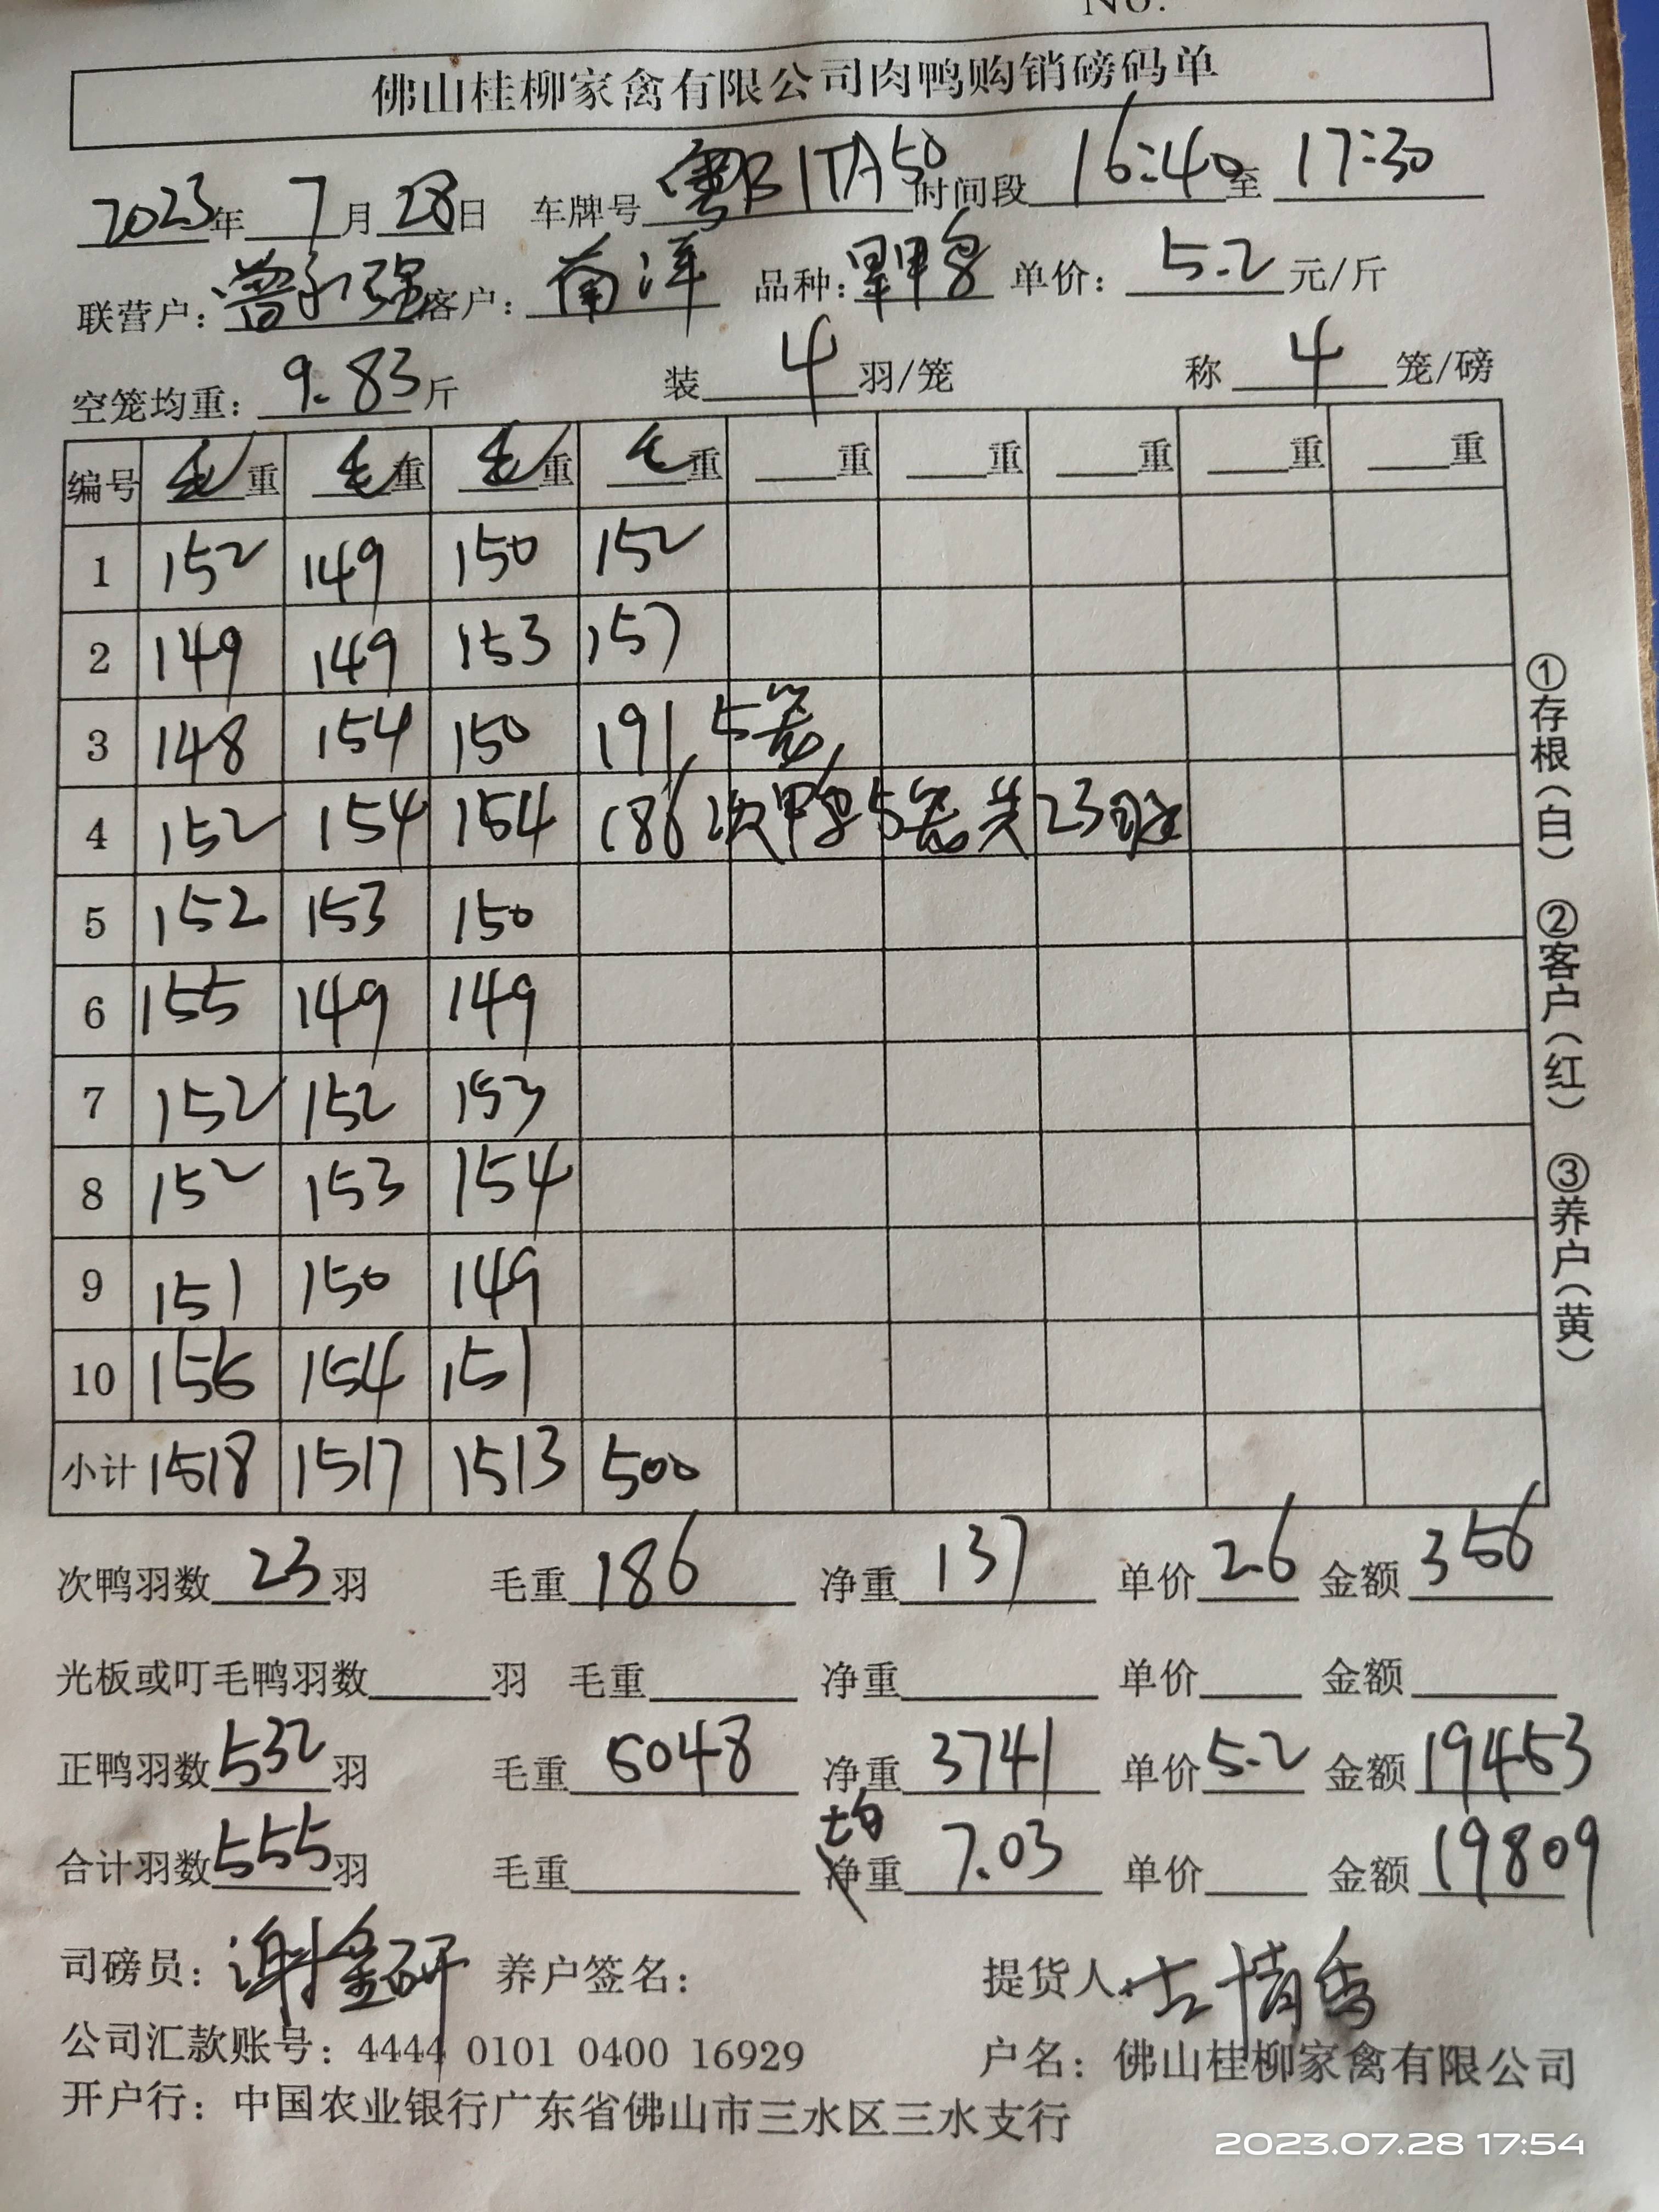 No.
佛山桂柳家禽有限公司肉鸭购销磅码单
2023年 7月 28日 车牌号 粤B1TA50 时间段 16:40 至 17:30
联营户: 曾永强 客户: 南洋 品种: 鸭 单价: 5.2 元/斤
空笼均重: 9.83 斤 装 4 羽/笼 称 4 笼/磅
编号 毛重 毛重 毛重 毛重 重 重 重 重 重
1 152 149 150 152
2 149 149 153 157
3 148 154 150 191 5笼
4 152 154 154 186 次鸭5笼共23只
5 152 153 150
6 155 149 149
7 152 152 153
8 152 153 154
9 151 150 149
10 156 154 151
小计 1518 1517 1513 500
次鸭羽数 23 羽 毛重 186 净重 137 单价 2.6 金额 356
光板或叮毛鸭羽数 羽 毛重 净重 单价 金额
正鸭羽数 532 羽 毛重 5048 净重 3741 单价 5.2 金额 19453
合计羽数 555 羽 毛重 均重 7.03 单价 金额 19809
司磅员: 谢金研 养户签名: 提货人:
公司汇款账号: 4444 0101 0400 16929 户名: 佛山桂柳家禽有限公司
开户行: 中国农业银行广东省佛山市三水区三水支行
①存根(白) ②客户(红) ③养户(黄)
2023.07.28 17:54